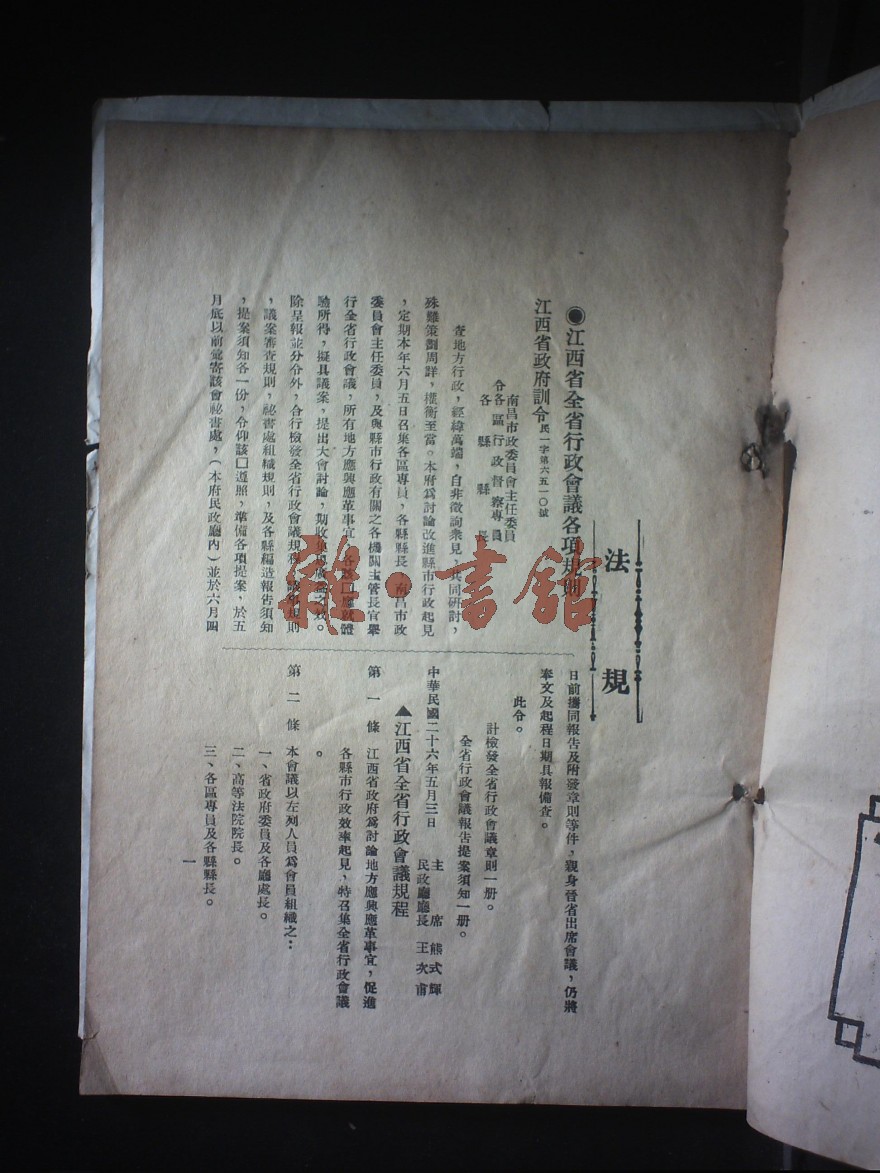 法規
◉江西省全省行政會議各項規則
江西省政府訓令民一字第六五一〇號
南昌市政委員會主任委員
令各區行政督察專員
各縣縣長
查地方行政，經緯萬端，自非徵詢衆見，共同研討，
殊難策劃周詳，權衡至當。本府爲討論改進縣市行政起見
，定期本年六月五日召集各區專員，各縣縣長，南昌市政
委員會主任委員，及與縣市行政有關之各機關主管長官舉
行全省行政會議，所有地方應興應革事宜，各該口應就體
驗所得，擬具議案，提出大會討論，期收集思廣益之效。
除呈報並分令外，合行檢發全省行政會議規程，議事規則
，議案審查規則，祕書處組織規則，及各縣編造報告須知
，提案須知各一份，令仰該口遵照，準備各項提案，於五
月底以前彙寄該會祕書處，（本府民政廳內）並於六月四
日前攜同報告及附發章則等件，親身晉省出席會議，仍將
奉文及起程日期具報備查。
此令。
計檢發全省行政會議章則一册。
全省行政會議報告提案須知一册。
中華民國二十六年五月三日
主席熊式輝
民政廳廳長王次甫
▲江西省全省行政會議規程
第一條 江西省政府爲討論地方應興應革事宜，促進
各縣市行政效率起見，特召集全省行政會議
。
第二條 本會議以左列人員爲會員組織之：
一、省政府委員及各廳處長。
二、高等法院院長。
三、各區專員及各縣縣長。
一
雜·書館